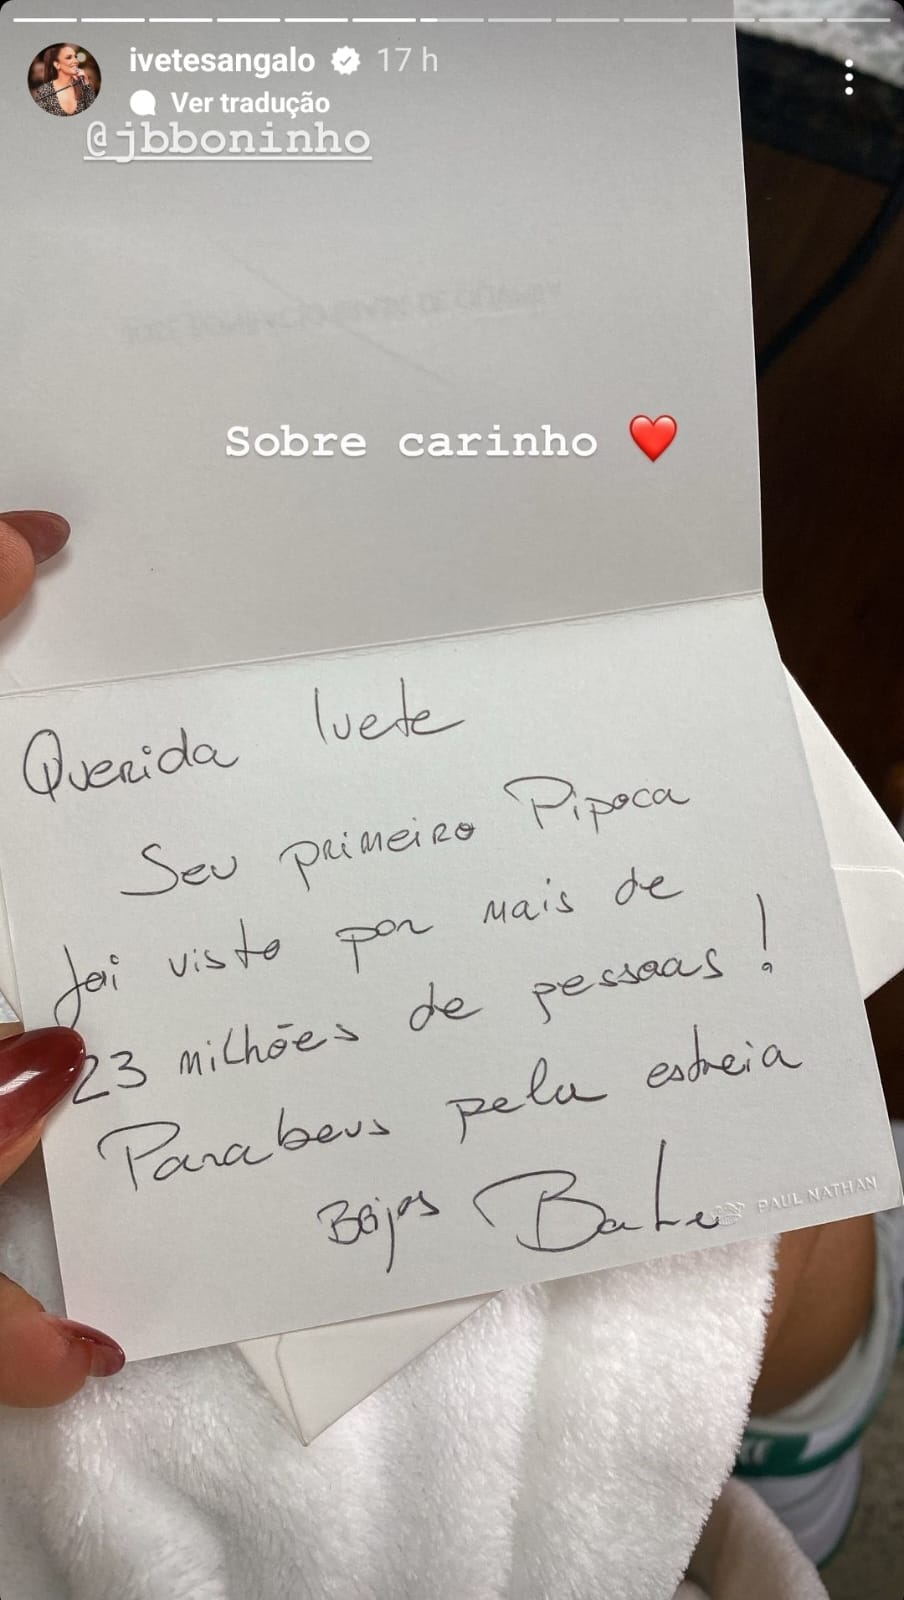 ivetesangalo 17 h
Ver tradução
@jbboninho
Sobre carinho ❤️
Querida Ivete
Seu primeiro Pipoca
foi visto por mais de
23 milhões de pessoas!
Parabens pela estreia
Beijos
PAUL NATHAN